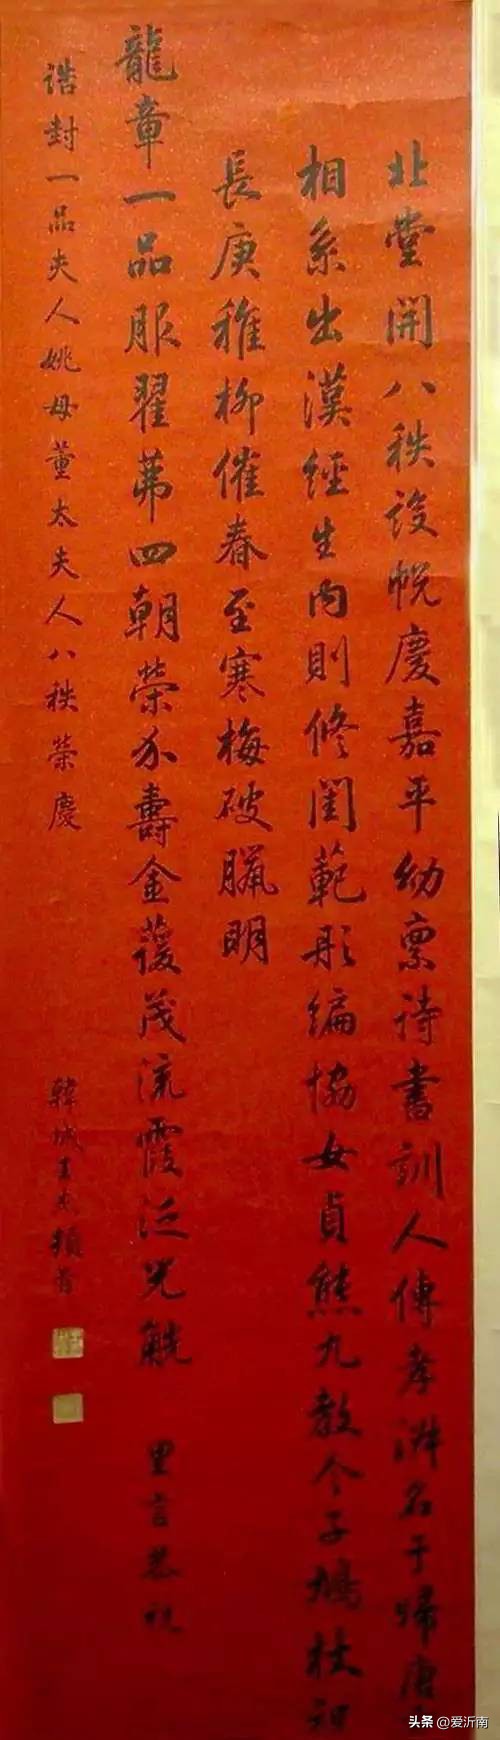 北堂開八秩設帨慶嘉平幼稟詩書訓人傳孝淑名于歸唐
相系出漢經生內則修閨範彤編協女貞熊丸教令子鳩杖祝
長庚稚柳催春至寒梅破臘明
龍章一品服翟茀四朝榮介壽金萱茂流霞泛兕觥 里言恭祝
誥封一品夫人姚母董太夫人八秩榮慶
韓城王杰頓首
头条 @爱沂南